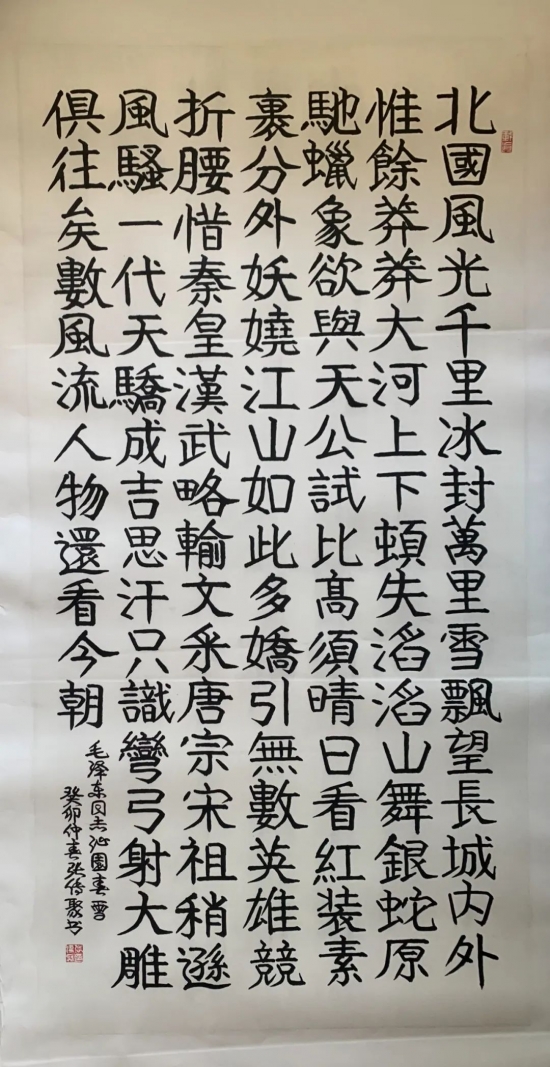 北國風光千里冰封萬里雪飄望長城内外
惟餘莽莽大河上下頓失滔滔山舞銀蛇原
馳蠟象欲與天公試比髙須晴日看紅装素
裹分外妖嬈江山如此多嬌引無數英雄競
折腰惜秦皇漢武略輸文采唐宗宋祖稍遜
風騷一代天驕成吉思汗只識彎弓射大雕
俱往矣數風流人物還看今朝
毛泽东同志沁園春雪
癸卯仲春张传聚书